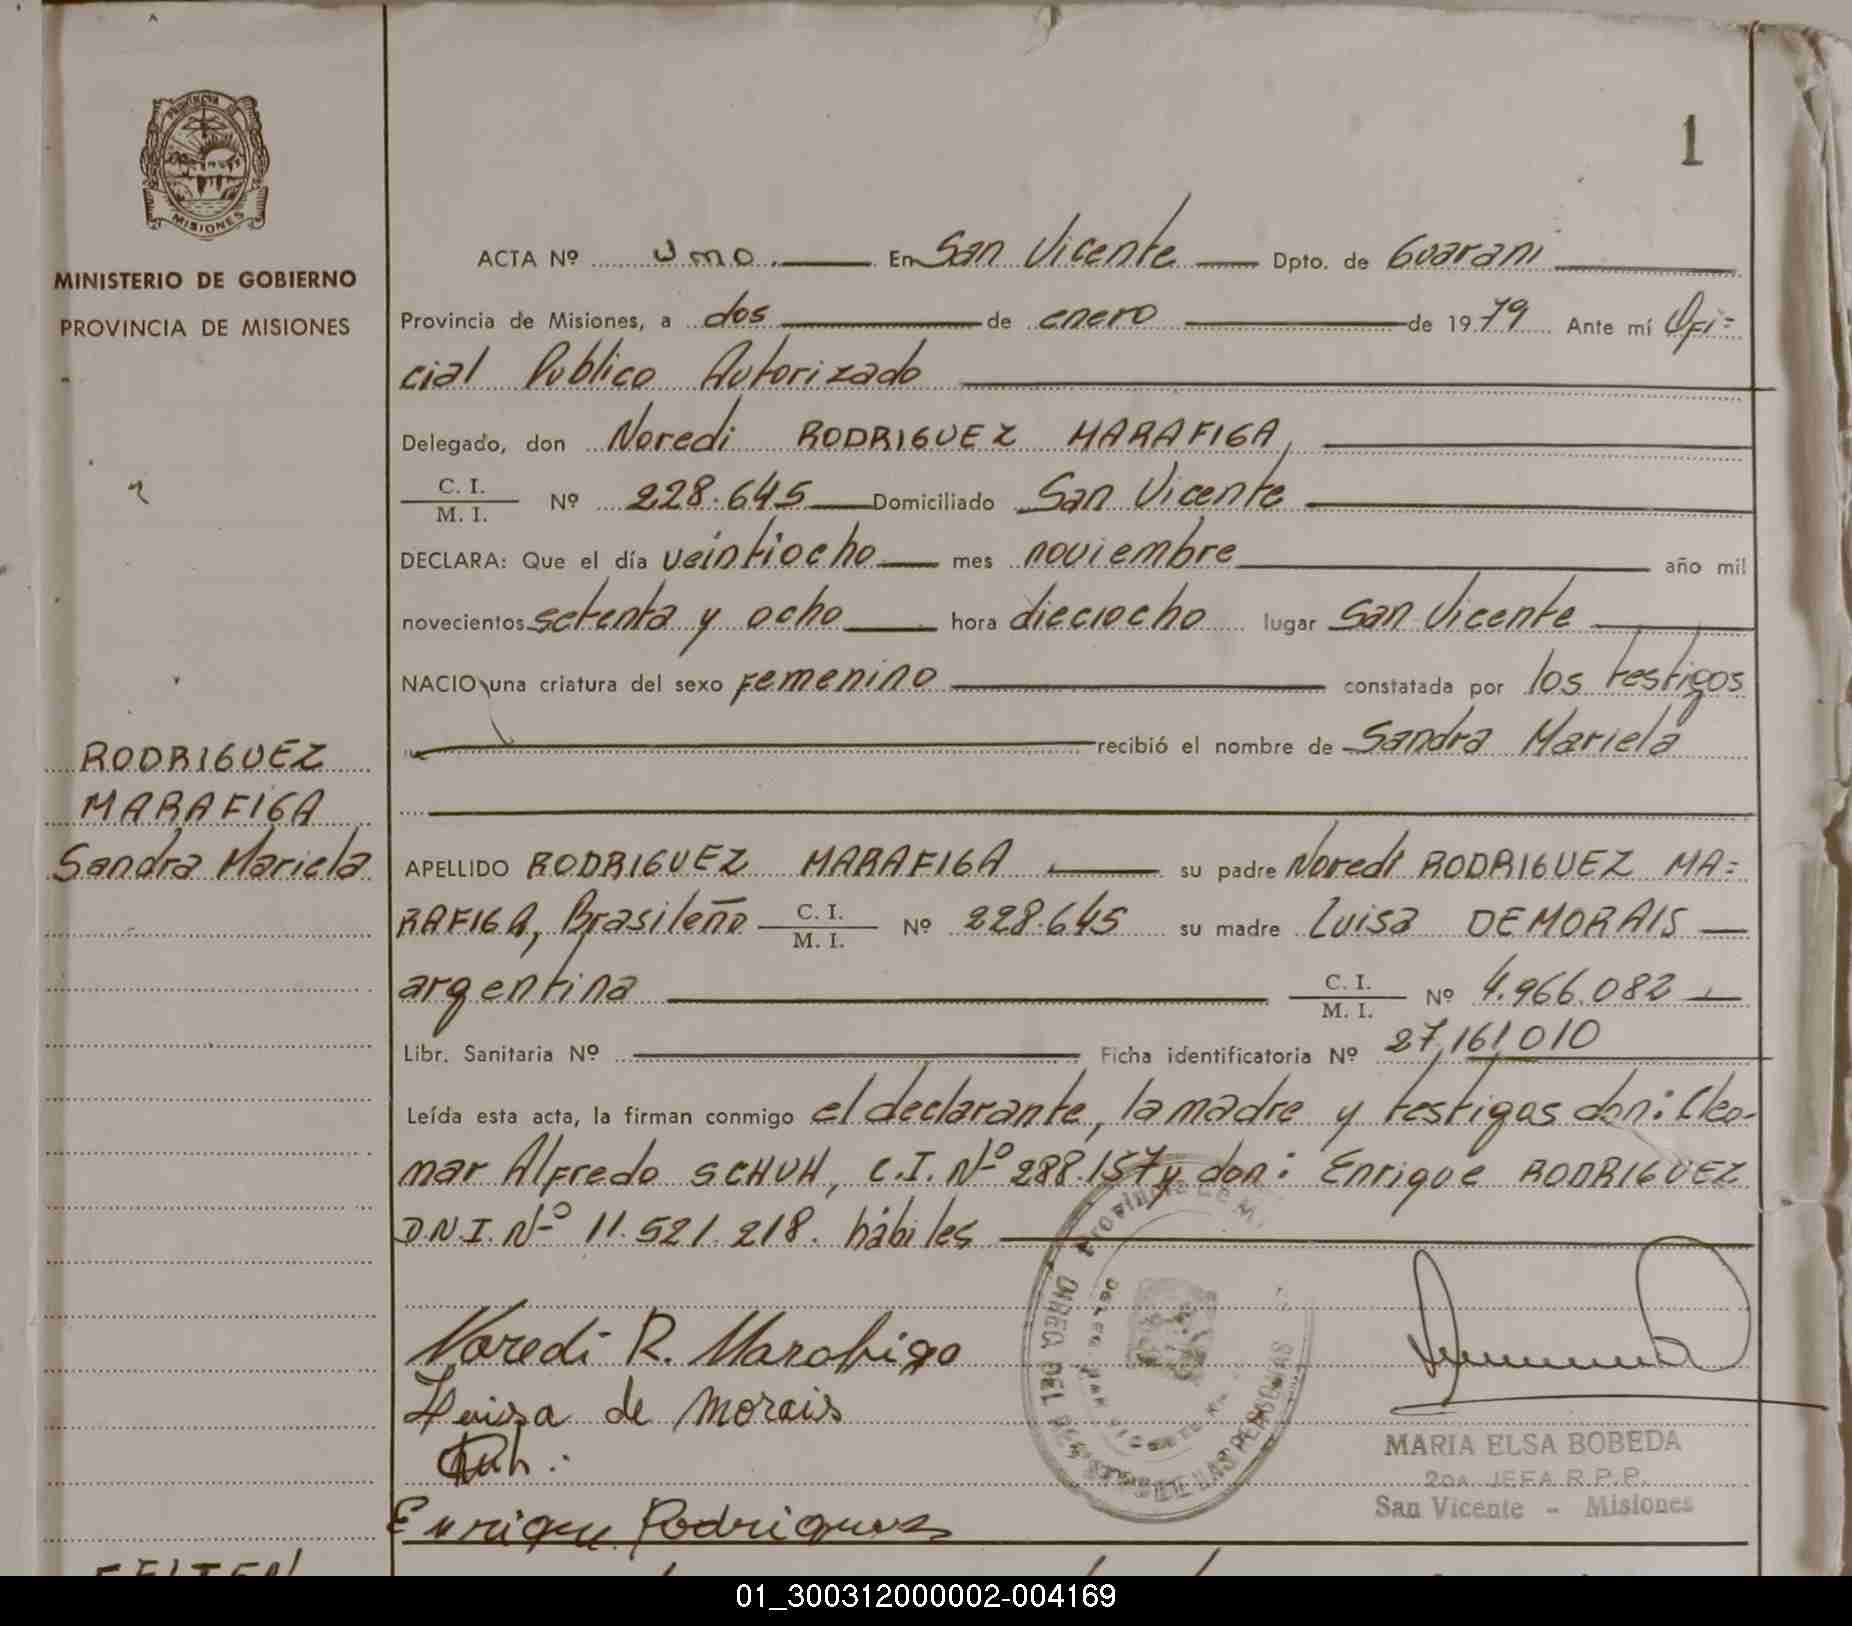 PROVINCIA DE
MISIONES
MINISTERIO DE GOBIERNO
PROVINCIA DE MISIONES
1
ACTA Nº uno. En San Vicente Dpto. de Guarani
Provincia de Misiones, a dos de enero de 1979 Ante mí Ofi=
cial Publico Autorizado
Delegado, don Noredi RODRIGUEZ MARAFIGA,
C. I.
M. I. Nº 228.645 Domiciliado San Vicente
DECLARA: Que el día veintiocho mes noviembre año mil
novecientos setenta y ocho hora dieciocho lugar San Vicente
NACIO una criatura del sexo femenino constatada por los testigos
recibió el nombre de Sandra Mariela
RODRIGUEZ
MARAFIGA
Sandra Mariela
APELLIDO RODRIGUEZ MARAFIGA su padre Noredi RODRIGUEZ MA=
RAFIGA, Brasileño C. I. M. I. Nº 228.645 su madre Luisa DE MORAIS
argentina C. I. M. I. Nº 4.966.082
Libr. Sanitaria Nº Ficha identificatoria Nº 27,161,010
Leída esta acta, la firman conmigo el declarante, la madre y testigos don: Cleo-
mar Alfredo SCHUH, C.I. Nº 288.157 y don: Enrique RODRIGUEZ
D.N.I. Nº 11.521.218. hábiles
Provincia de
DEL REGISTRO DE LAS PERSONAS
Noredi R. Marafiga
Luisa de Morais
Enrique Rodriguez
MARIA ELSA BOBEDA
2DA. JEFA R.P.P.
San Vicente - Misiones
01_300312000002-004169